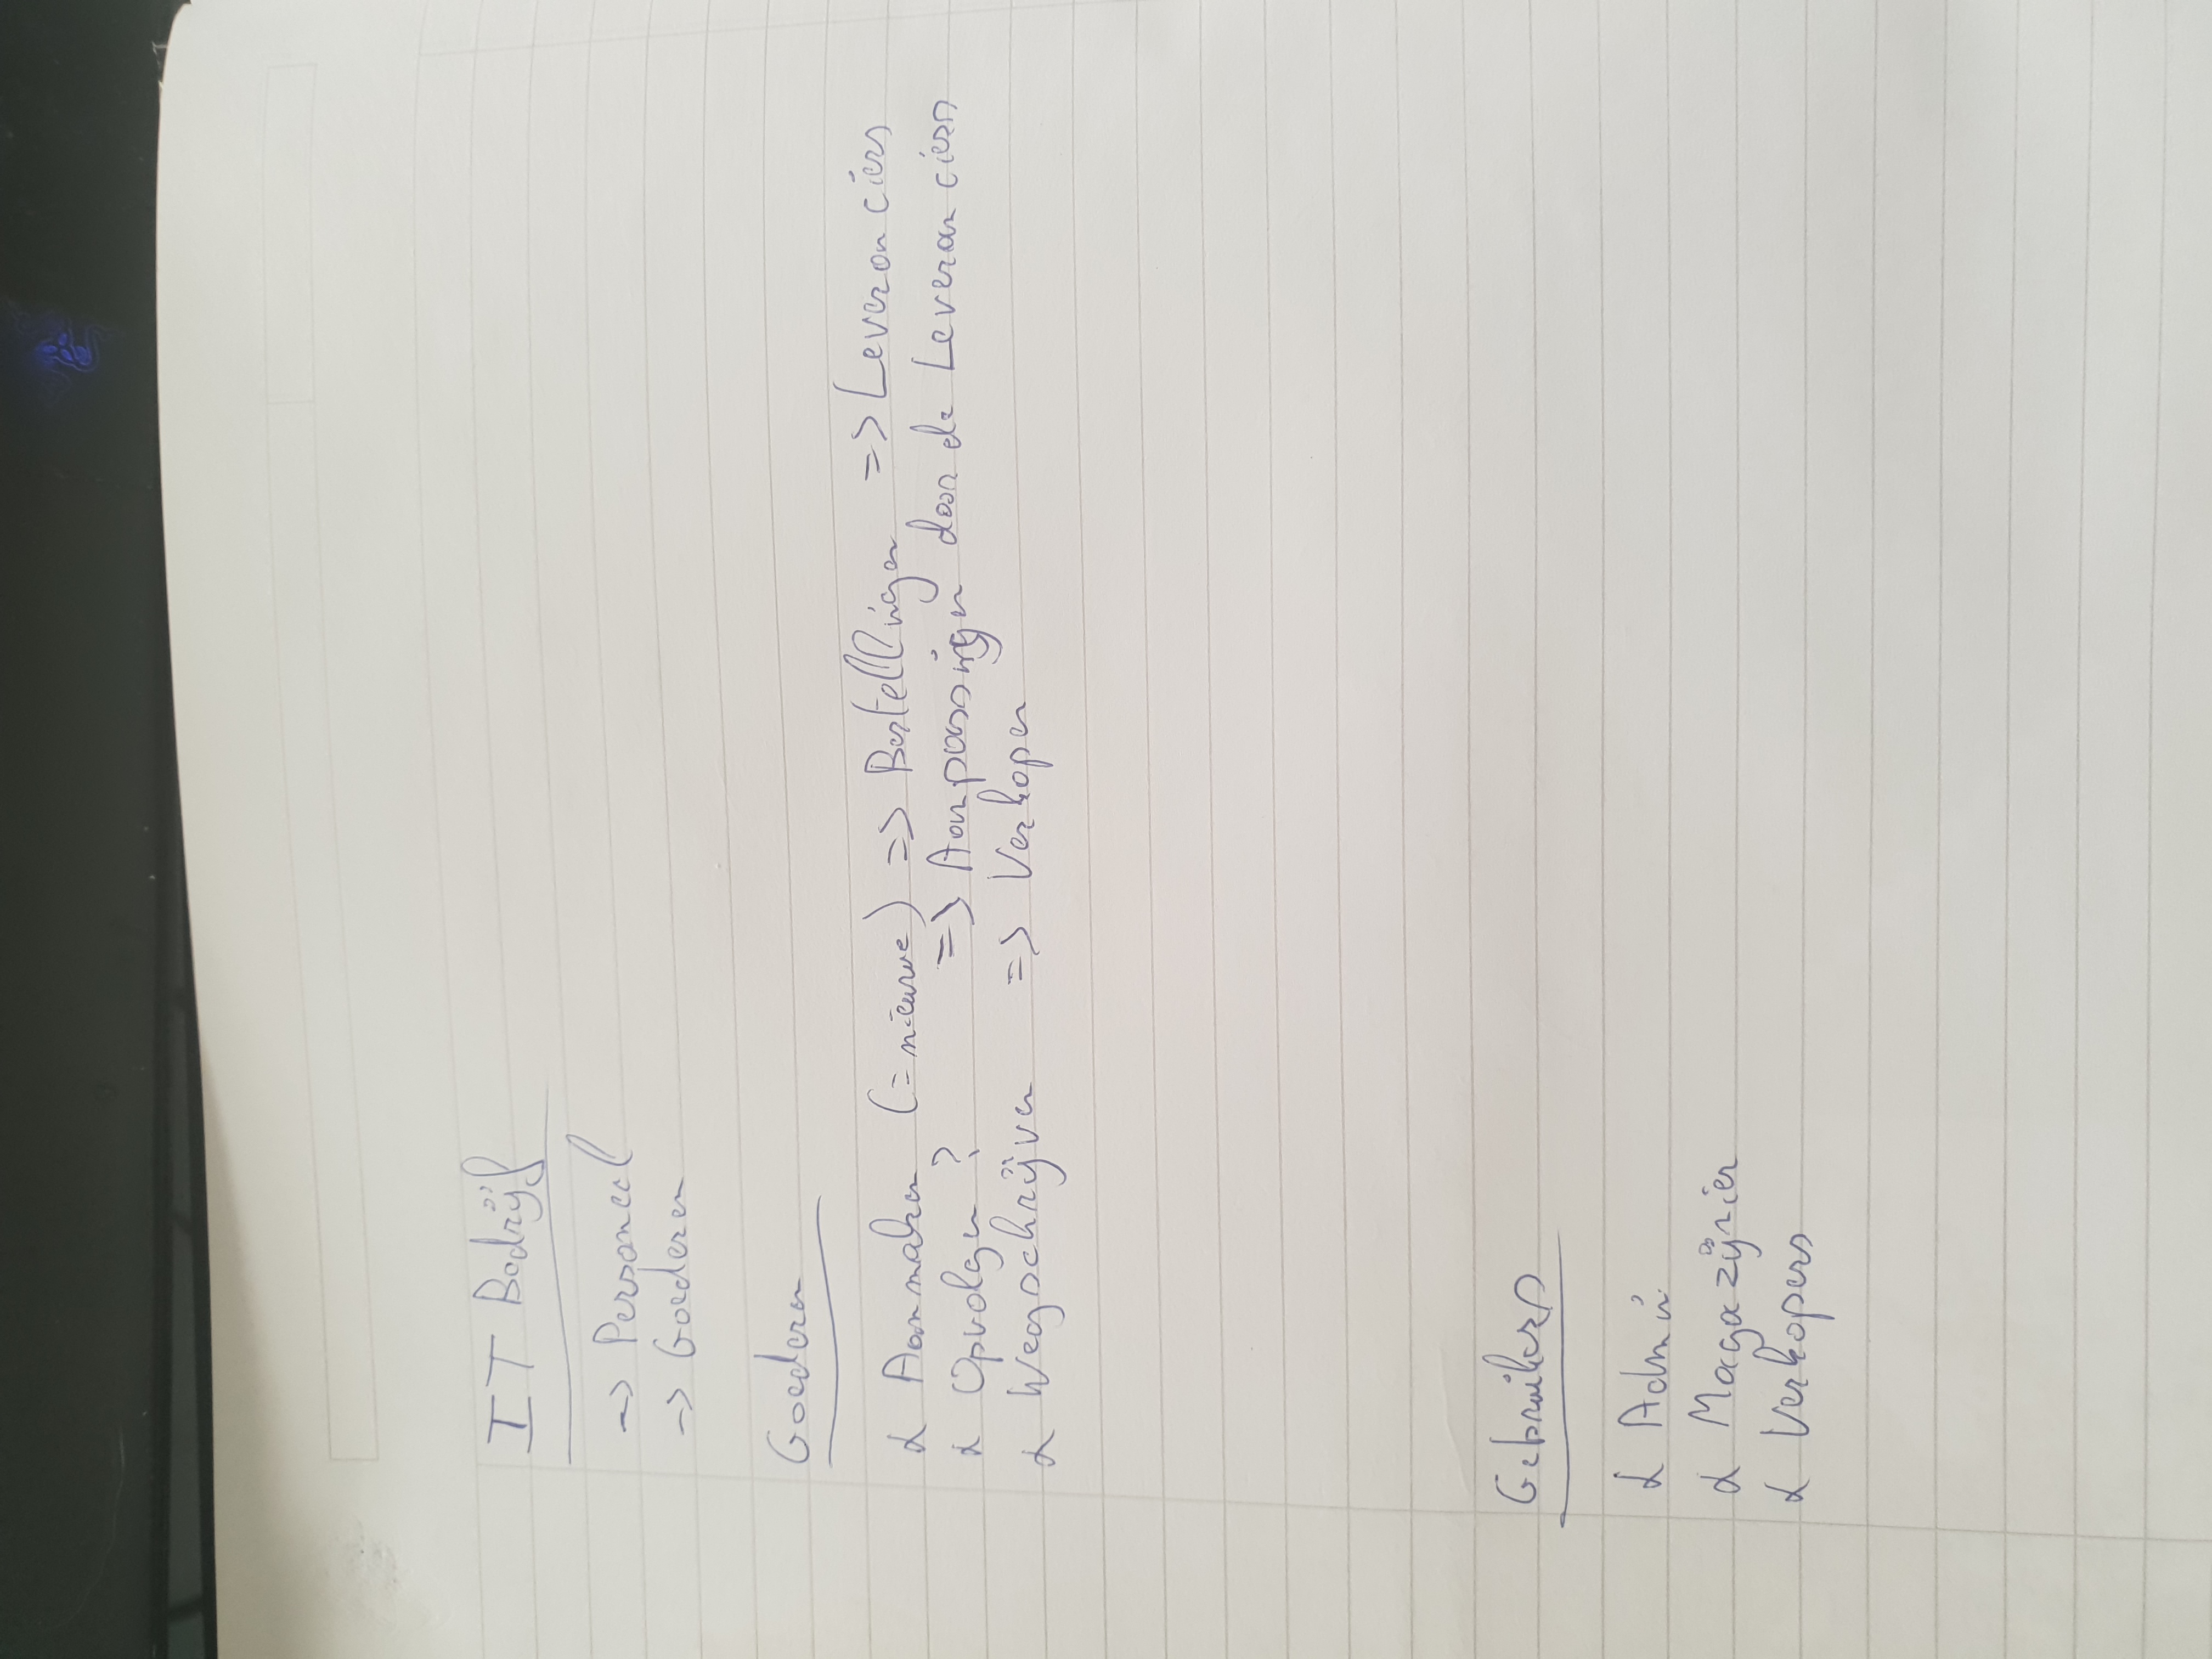 IT Bedrijf
-> Personeel
-> Goederen
Goederen
α Aanmaken (= nieuwe) => Bestellingen => Leveranciers
α Opvolgen ? => Aanpassingen door de Leveranciers
α Wegschrijven => Verkopen
Gebruikers
α Admin
α Magazijnier
α Verkopers